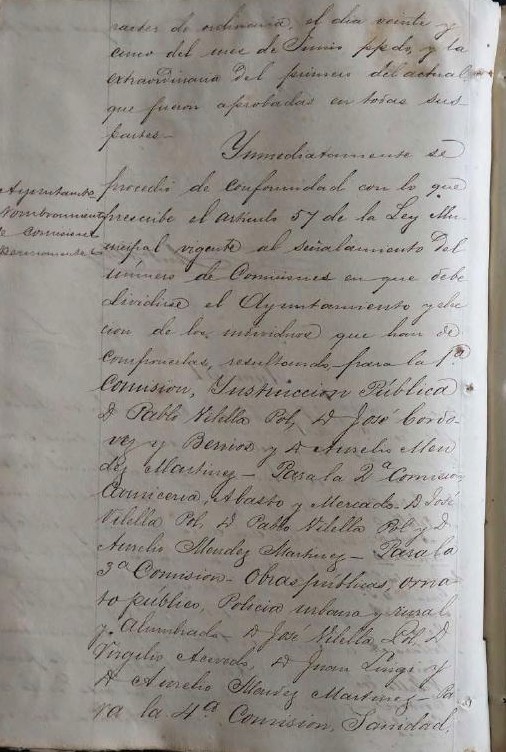 racter de ordinaria, el dia veinte y
cinco del mes de Junio ppdo, y la
extraordinaria del primero del actual
que fueron aprobadas en todas sus
partes.—
Ynmediatamente se
procedió de conformidad con lo que
prescribe el artículo 57 de la Ley Mu-
nicipal vigente al señalamiento del
número de Comisiones en que debe
dividirse el Ayuntamiento y elec
cion de los individuos que han de
componerlas, resultando para la 1ª
Comision, Ynstruccion Pública
D Pablo Vilella Pol, D José Cordo-
vez y Berrios y D Aurelio Men
dez Martinez— Para la 2ª Comision
Carniceria, Abasto y Mercado. D José
Vilella Pol, D Pablo Vilella Pol y D
Aurelio Mendez Martinez— Para la
3ª Comision— Obras públicas, orna-
to público, Policia urbana y rural
y Alumbrado— D José Vilella Pol, D
Virgilio Acevedo, D Juan y
D Aurelio Mendez Martinez— Pa-
ra la 4ª Comision, Sanidad,
Ayuntamto
Nombramiento
de Comisiones
permanentes